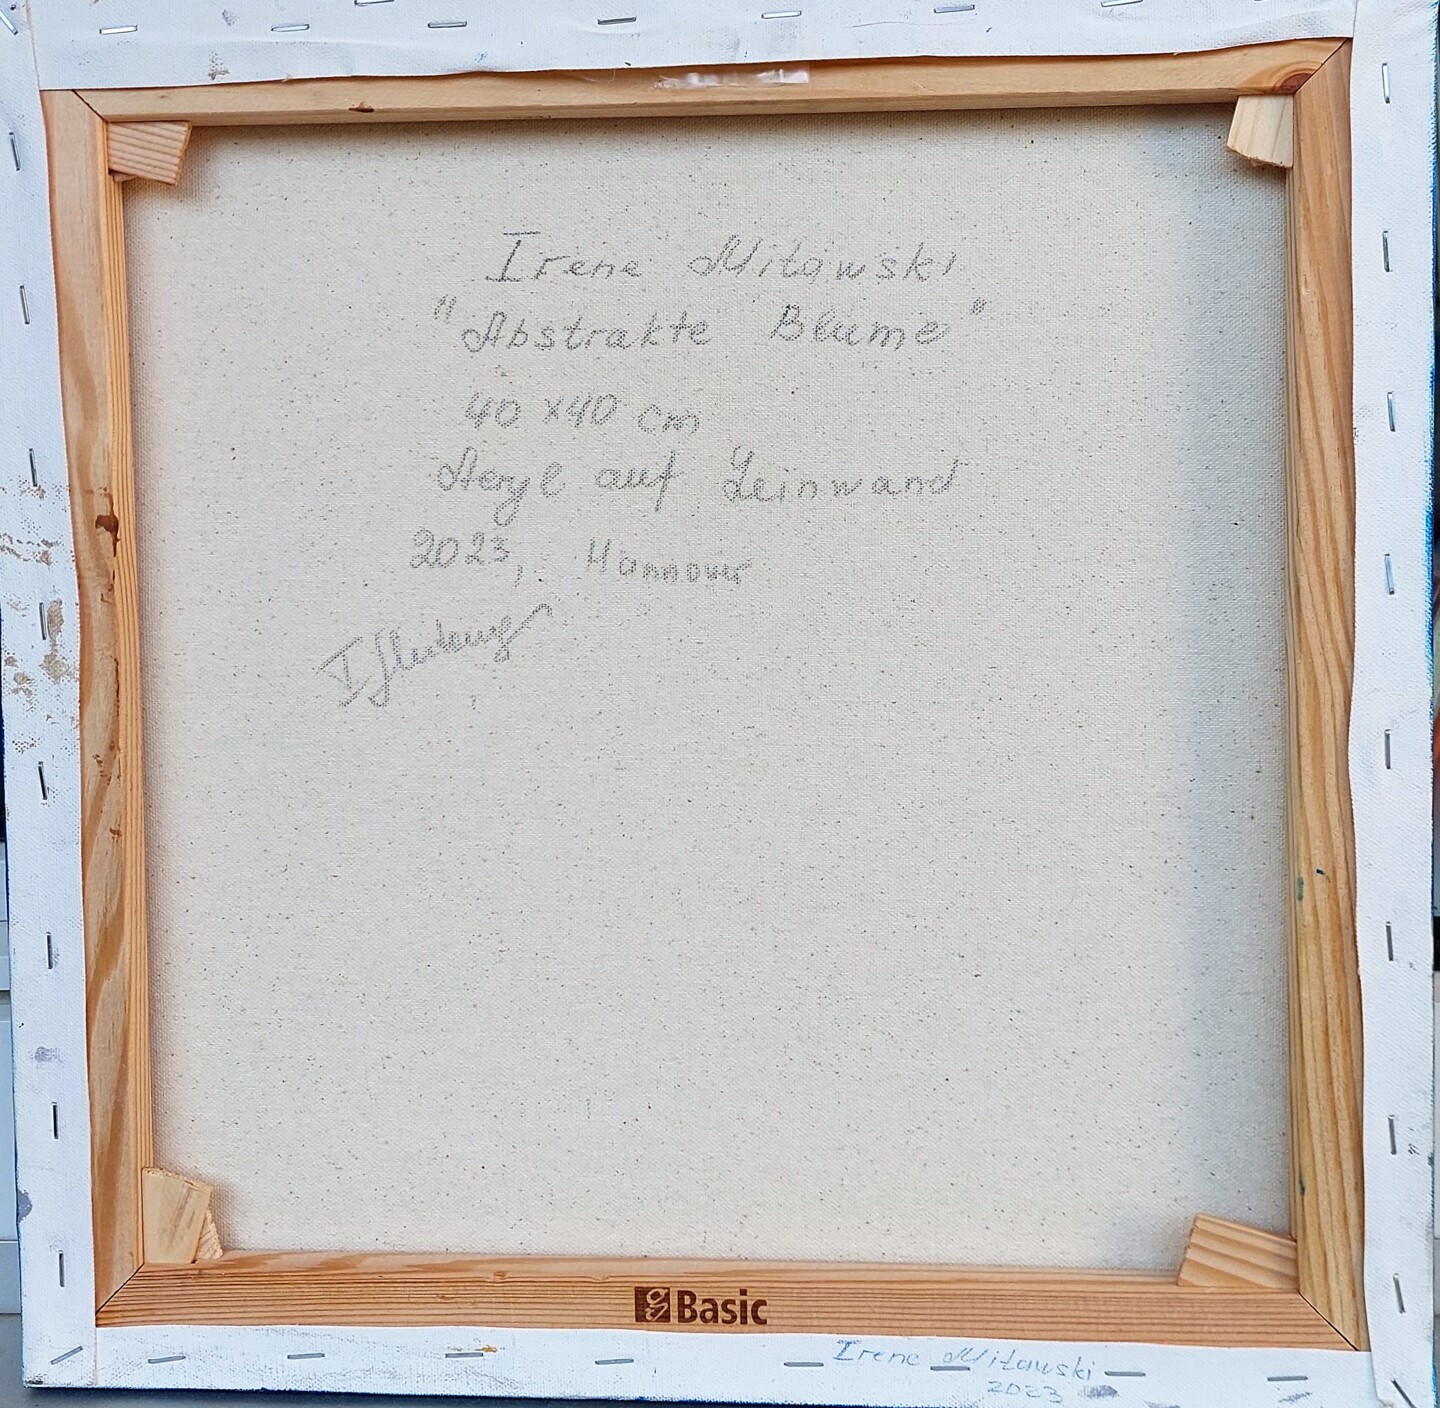 Irene Mitowski
"Abstrakte Blume"
40 x 40 cm
Acryl auf Leinwand
2023, Hannover
Basic
Irene Mitowski
2023